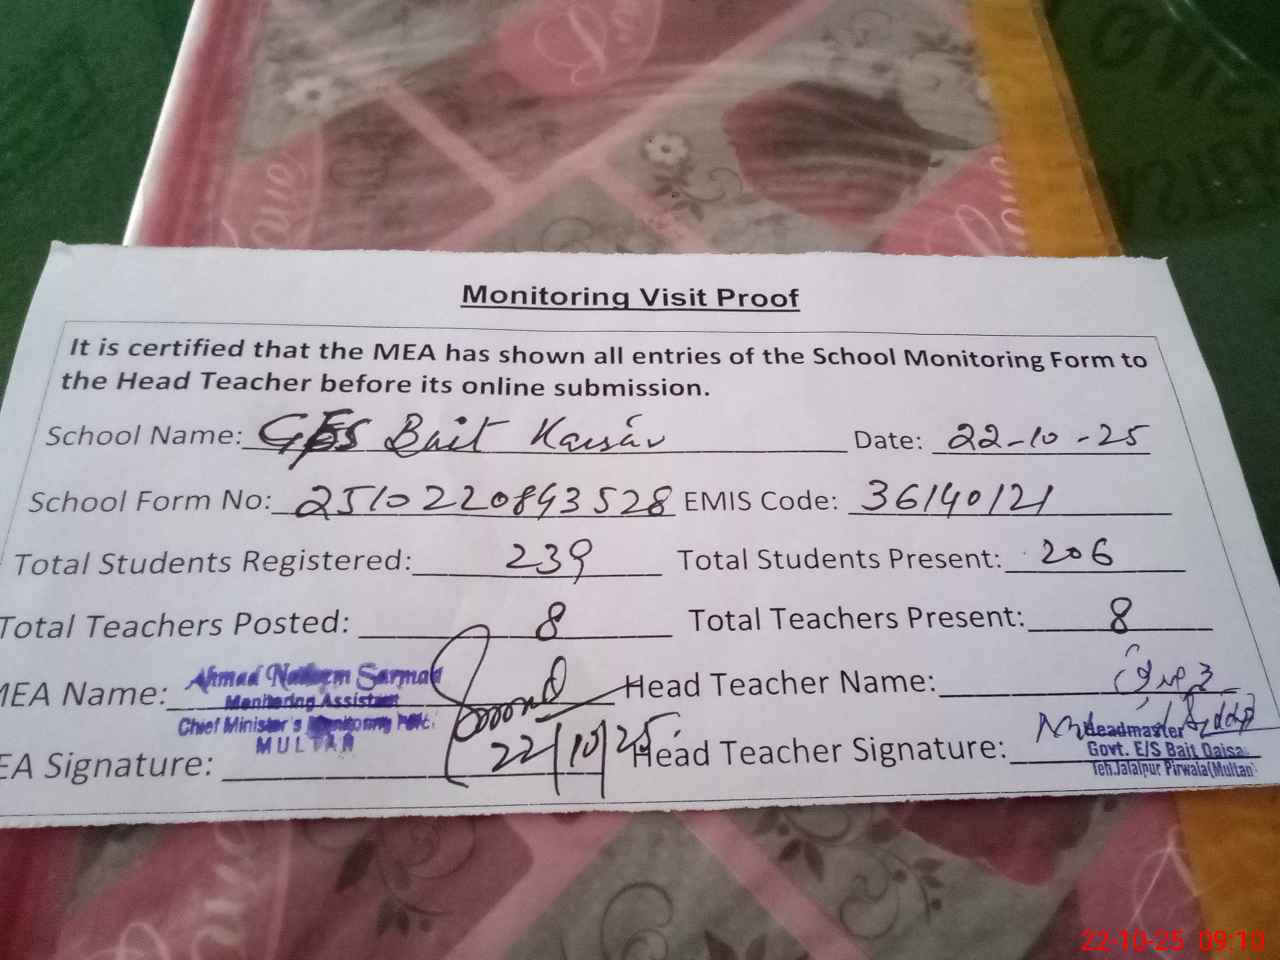 Monitoring Visit Proof
It is certified that the MEA has shown all entries of the School Monitoring Form to
the Head Teacher before its online submission.
School Name: GES Bait Kaisar Date: 22-10-25
School Form No: 2510220843528 EMIS Code: 36140121
Total Students Registered: 239 Total Students Present: 206
Total Teachers Posted: 8 Total Teachers Present: 8
MEA Name: Ahmad Nadeem Sarmad Head Teacher Name:
Monitoring Assistant
Chief Minister's Monitoring
MULTAN
EA Signature: 22/10/25 Head Teacher Signature:
Headmaster
Govt. E/S Bait Qaisa
Teh.Jalalpur Pirwala(Multan)
Love
Love
Love
22-10-25 09:10